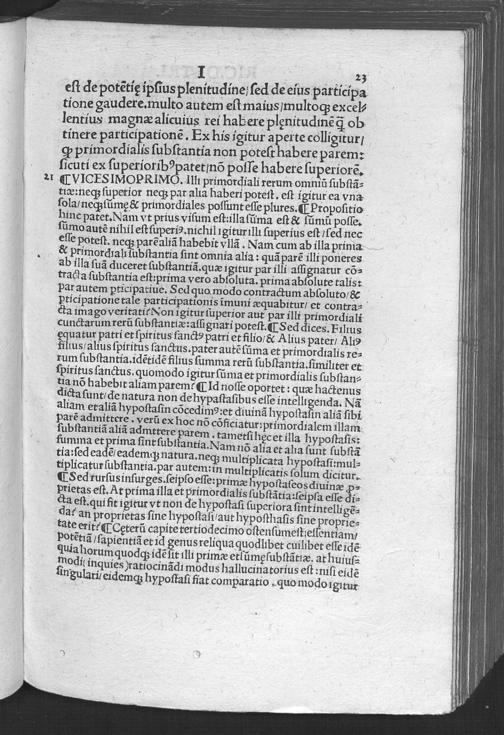 I
23
est de potẽtię ipsius plenitudine/ sed de eius participa
tione gaudere. multo autem est maius/ multoq; excel⸗
lentius magnæ alicuius rei habere plęnitudinẽ q̃ ob
tinere participationẽ. Ex his igitur aperte colligitur/
ꝙ primordialis substantia non potest habere parem:
sicuti ex superiorib⁹ patet/ nõ posse habere superiorẽ.
21 ¶VICESIMOPRIMO. Illi primordiali rerum omniũ substã⸗
tiæ: neq; superior neq; par alia haberi potest. est igitur ea vna
sola/ neq; sũmę & primordiales possunt esse plures. ¶Propositio
hinc patet. Nam vt prius visum est: illa sũma est & sũmũ posse.
sũmo autẽ nihil est superi⁹. nichil igitur illi superius est/ sed nec
esse potest. neq; parẽ aliã habebit vllã. Nam cum ab illa prima
& primordiali substantia sint omnia alia: quã parẽ illi poneres
ab illa suã duceret substantiã. quæ igitur par illi assignatur cõ⸗
tracta substantia est: prima vero absoluta. prima absolute talis:
par autem pticipatiue. Sed quo modo contractum absoluto/ &
pticipatione tale participationis imuni æquabitur/ et contra⸗
cta imago veritati? Non igitur superior aut par illi primordiali
cunctarum rerũ substantiæ: assignari potest. ¶Sed dices. Filius
equatur patri et spiritus sanct⁹ patri et filio/ & Alius pater/ Ali⁹
filius/ alius spiritus sanctus. pater autẽ sũma et primordialis re⸗
rum substantia. idẽtidẽ filius summa rerũ substantia. similiter et
spiritus sanctus. quomodo igitur sũma et primordialis substan⸗
tia nõ habebit aliam parem? ¶Id nosse oportet: quæ hactenus
dicta sunt/ de natura non de hypostasibus esse intelligenda. Nã
aliam et aliã hypostasin cõcedim⁹: et diuinã hypostasin aliã sibi
parẽ admittere. verũ ex hoc nõ cõficiatur: primordialem illam
substantiã aliã admittere parem. tametsi hęc et illa hypostasis:
summa et prima sint substantia. Nam nõ alia et alia sunt substã
tia: sed eadẽ/ eademq; natura. neq; multiplicata hypostasi: mul⸗
tiplicatur substantia. par autem: in multiplicatis solum dicitur.
¶Sed rursus insurges. seipso esse: primæ hypostaseos diuinæ ꝓ⸗
prietas est. At prima illa et primordialis substãtia: seipsa esse di⸗
cta est. qui fit igitur vt non de hypostasi superiora sint intelligẽ⸗
da? an proprietas sine hypostasi/ aut hyposthasis sine proprie⸗
tate erit? ¶Cęterũ capite tertiodecimo ostensũ mest: essentiam/
potẽtiã/ sapientiã et id genus reliqua quodlibet cuilibet esse idẽ
quia horum quodq; idẽ sit illi primæ et sũmę substãtiæ. at huius⸗
modi (inquies) ratiocinãdi modus hallucinatorius est: nisi eidẽ
singulari/ eidemq; hypostasi fiat comparatio. quo modo igitur